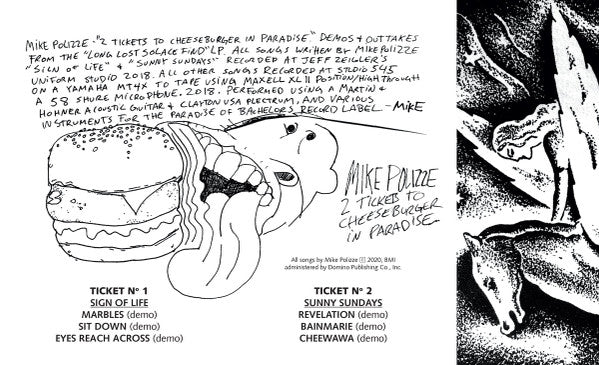 MIKE POLIZZE - "2 TICKETS TO CHEESEBURGER IN PARADISE." DEMOS & OUTTAKES
FROM THE "LONG LOST SOLACE FIND" LP. ALL SONGS WRITTEN BY MIKE POLIZZE
"SIGN OF LIFE" & "SUNNY SUNDAYS" RECORDED AT JEFF ZEIGLER'S
UNIFORM STUDIO 2018. ALL OTHER SONGS RECORDED AT STUDIO 545
ON A YAMAHA MT4X TO TAPE USING MAXELL XL II POSITION/HIGH THROUGH
A 58 SHURE MICROPHONE. 2018. PERFORMED USING A MARTIN &
HOHNER ACOUSTIC GUITAR & CLAYTON USA PLECTRUM, AND VARIOUS
INSTRUMENTS FOR THE PARADISE OF BACHELORS RECORD LABEL - MIKE
MIKE POLIZZE
2 TICKETS TO
CHEESEBURGER
IN PARADISE
All songs by Mike Polizze Ⓟ 2020, BMI
administered by Domino Publishing Co., Inc.
TICKET Nº 1
SIGN OF LIFE
MARBLES (demo)
SIT DOWN (demo)
EYES REACH ACROSS (demo)
TICKET Nº 2
SUNNY SUNDAYS
REVELATION (demo)
BAINMARIE (demo)
CHEEWAWA (demo)